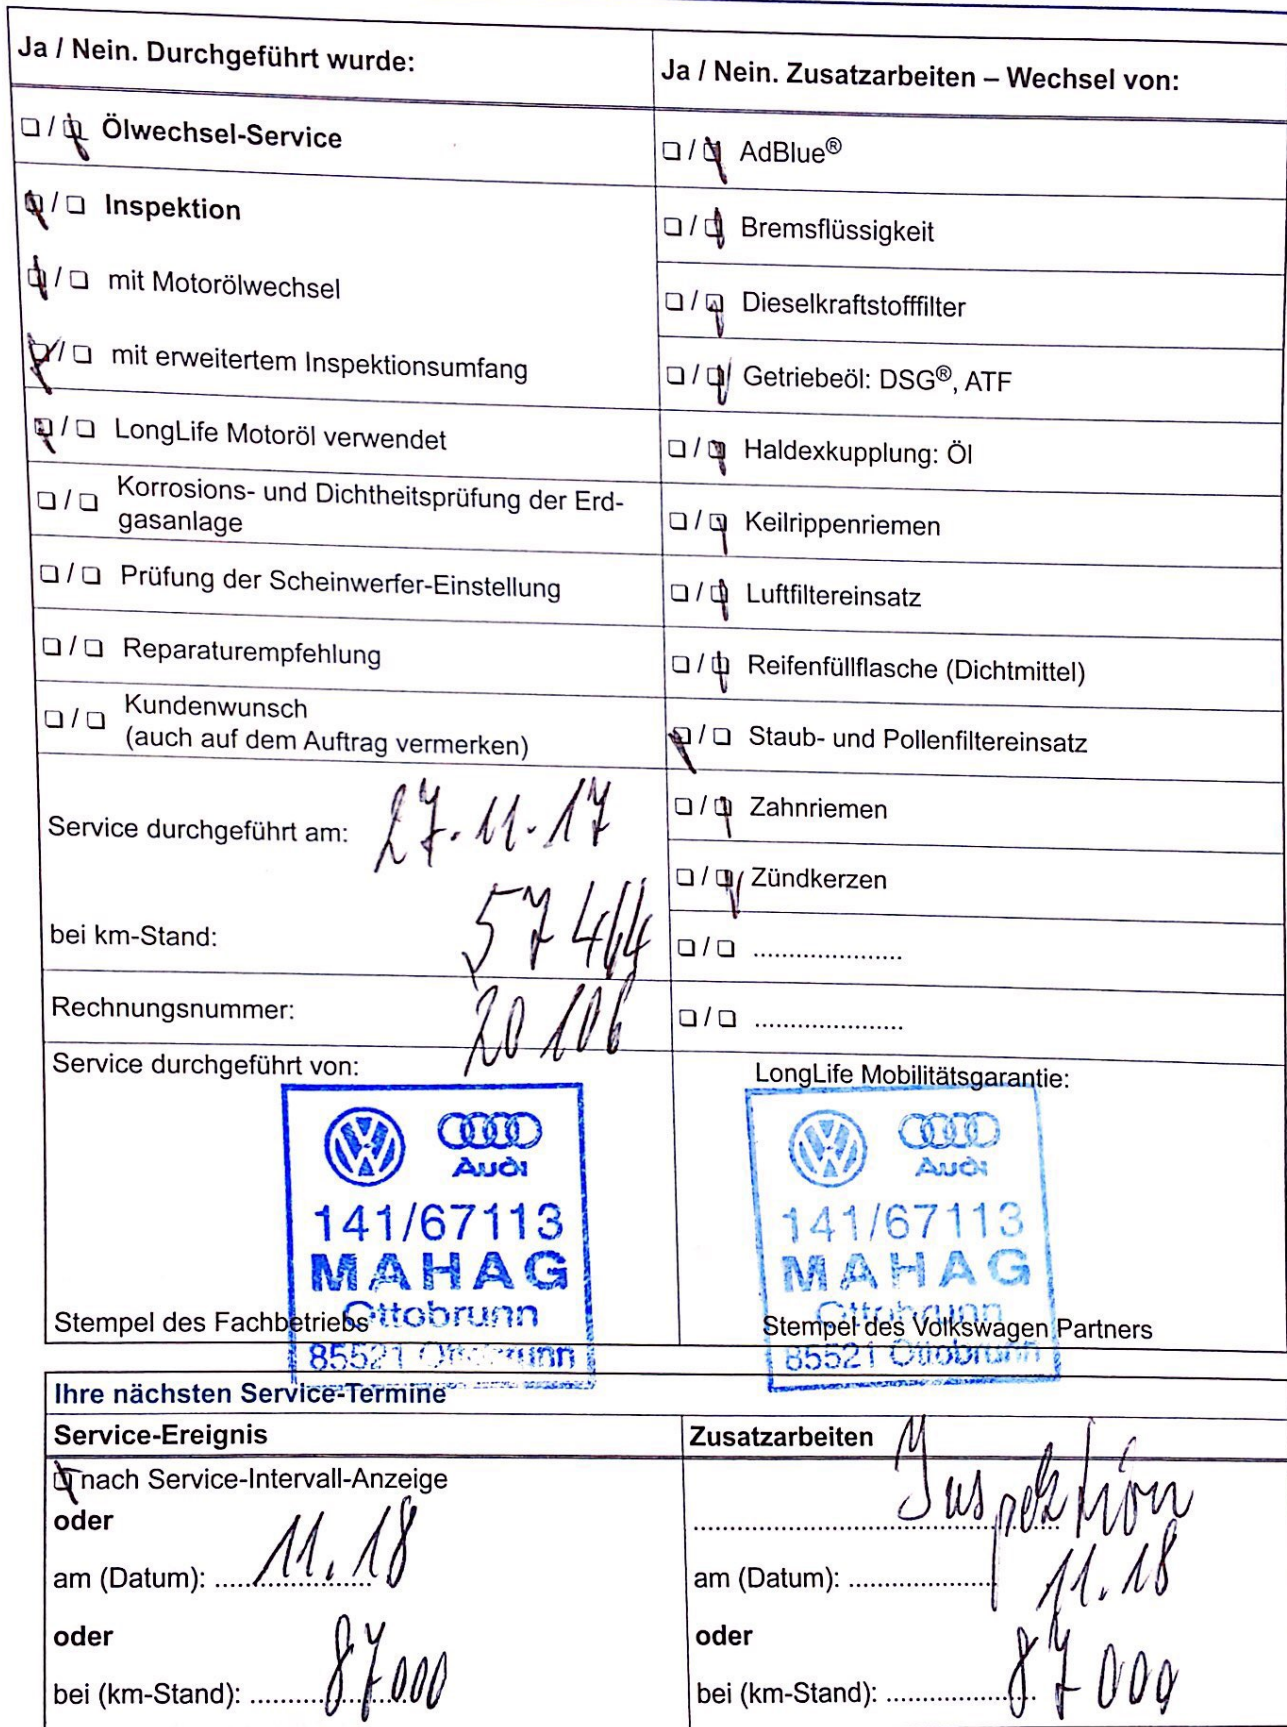 Ja / Nein. Durchgeführt wurde:
☐ / ☒ Ölwechsel-Service
☒ / ☐ Inspektion
☒ / ☐ mit Motorölwechsel
☒ / ☐ mit erweitertem Inspektionsumfang
☒ / ☐ LongLife Motoröl verwendet
☐ / ☐ Korrosions- und Dichtheitsprüfung der Erd-
gasanlage
☐ / ☐ Prüfung der Scheinwerfer-Einstellung
☐ / ☐ Reparaturempfehlung
☐ / ☐ Kundenwunsch
(auch auf dem Auftrag vermerken)
Service durchgeführt am: 27.11.17
bei km-Stand: 57464
Rechnungsnummer: 20106
Service durchgeführt von:
Audi
141/67113
MAHAG
Ottobrunn
85521 Ottobrunn
Stempel des Fachbetriebs
Ja / Nein. Zusatzarbeiten – Wechsel von:
☐ / ☒ AdBlue®
☐ / ☒ Bremsflüssigkeit
☐ / ☒ Dieselkraftstofffilter
☐ / ☒ Getriebeöl: DSG®, ATF
☐ / ☒ Haldexkupplung: Öl
☐ / ☒ Keilrippenriemen
☐ / ☒ Luftfiltereinsatz
☐ / ☒ Reifenfüllflasche (Dichtmittel)
☒ / ☐ Staub- und Pollenfiltereinsatz
☐ / ☒ Zahnriemen
☐ / ☒ Zündkerzen
☐ / ☐ .....................
☐ / ☐ .....................
LongLife Mobilitätsgarantie:
Audi
141/67113
MAHAG
Ottobrunn
85521 Ottobrunn
Stempel des Volkswagen Partners
Ihre nächsten Service-Termine
Service-Ereignis
☒ nach Service-Intervall-Anzeige
oder
am (Datum): 11.18
oder
bei (km-Stand): 87000
Zusatzarbeiten
Inspektion
am (Datum): 11.18
oder
bei (km-Stand): 87000